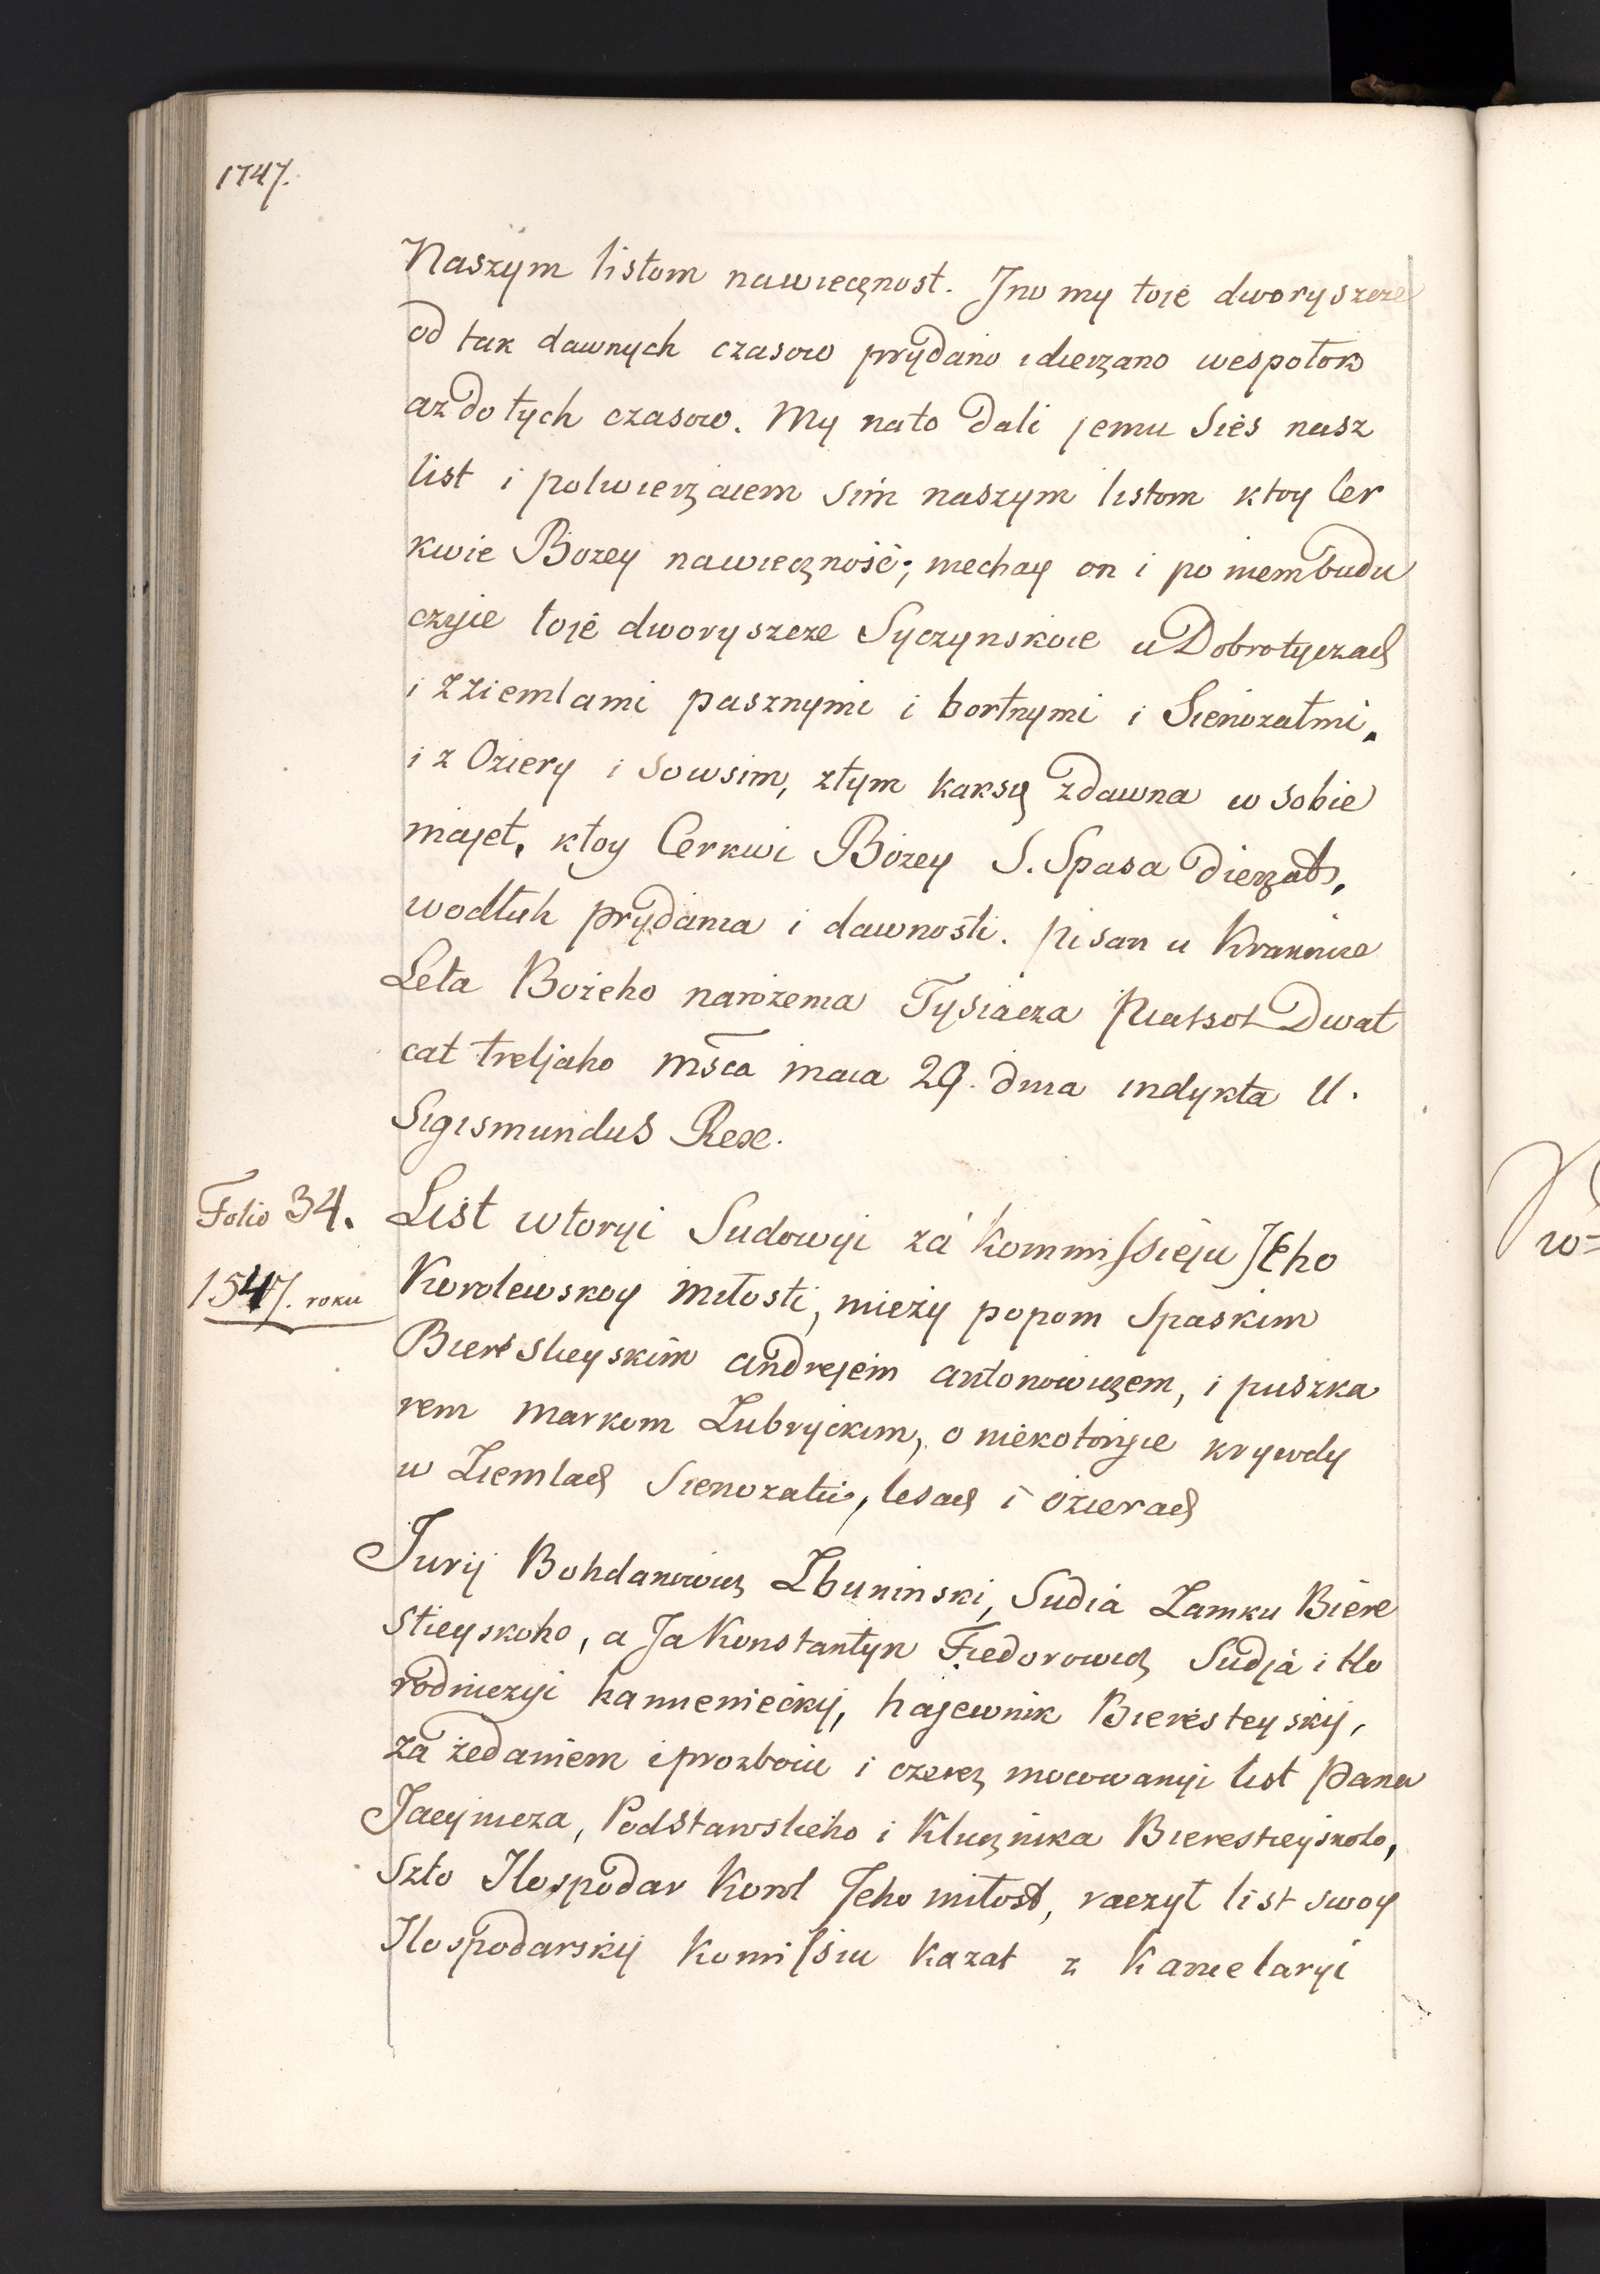 1747.
Naszym listom nawiecznost. Jno my toie dworyszcze
od tak dawnych czasow prydano idierzano wespołok
az do tych czasow. My nato Dali jemu Sies nasz
list i potwierzaiem sim naszym listom ktoy Cer
kwie Bozey nawieczność; niechay on i po niem budu
czyie toie dworyszcze Syczynskoie u Dobrotyczach
i z ziemlami pasznymi i bortnymi i Sienozatmi,
i z Oziery i Sowsim, z tym kaksię zdawna w sobie
majet, ktoy Cerkwi Bozey S. Spasa Dierzat,
wodłuh prydania i dawnosti. pisan u Krakowie
Leta Bożeho narożenia Tysiacza Piatsot Dwat
cat tretjaho Msca maia 29. dnia indykta 11.
Sigismundus Rex.
Folio 34.
1547. roku
List wtoryi Sudowyi za Kommissieju Jeho
Korolewskoy miłosti, mieży popom Spaskim
Bieresteyskim andrejem antonowiczem, i puszka
rem markom Zubryckim, o niekotoryie krywdy
w Ziemlach Sienozatii, lesach i ozierach
Jurij Bohdanowicz Zbuninski, Sudia Zamku Biere
stieyskoho, a Ja Konstantyn Fiedorowicz Sudja i Ho
rodniczyi kamienieckij, hajewnik Bieresteyskij,
za żedaniem i prozboiu i czerez mocowanyi list Pana
Jacynicza, Podstarostieho i Klucznika Bierestieyskoho,
Szto Hospodar Korol Jeho miłost, raczył list swoy
Hospodarskij Komissiu kazat z Kancelaryi